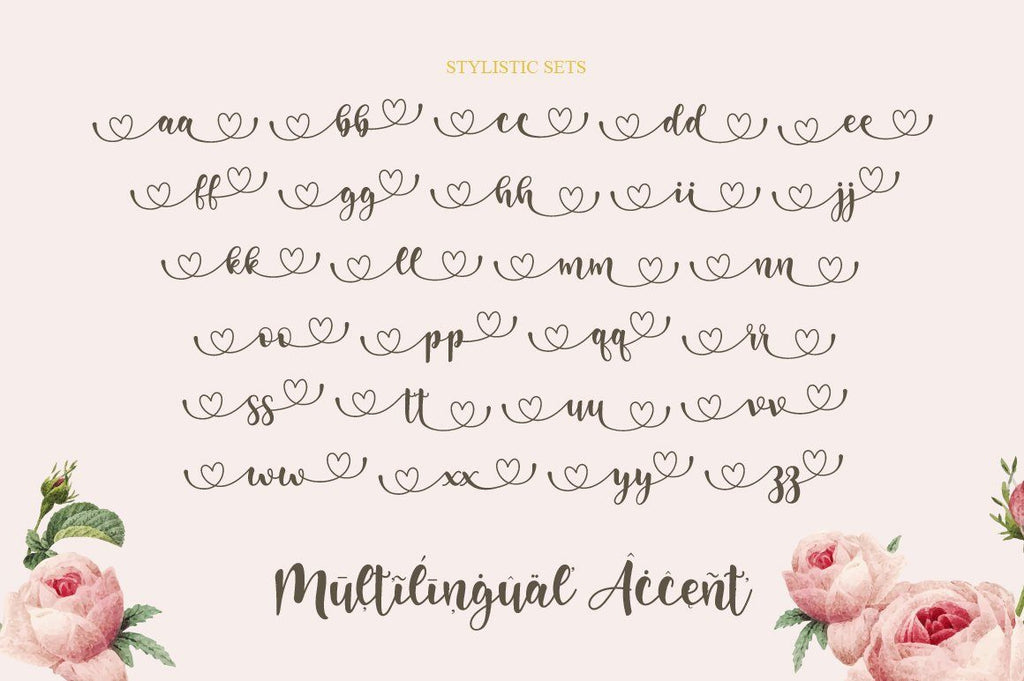 STYLISTIC SETS
aa bb cc dd ee
ff gg hh ii jj
kk ll mm nn
oo pp qq rr
ss tt uu vv
ww xx yy zz
Mūļťĩĺīņġûäľ Âċĉęñť